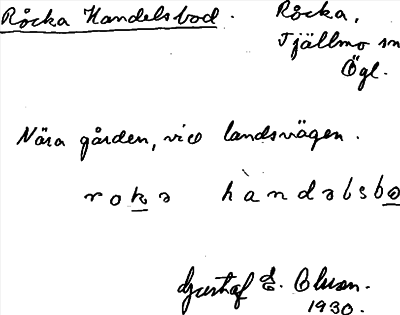 Råcka Handelsbod. Råcka,
Tjällmo sn
Ögl.
Nära gården, vid landsvägen.
roka handəbsbo
Gustaf Olson.
1930.